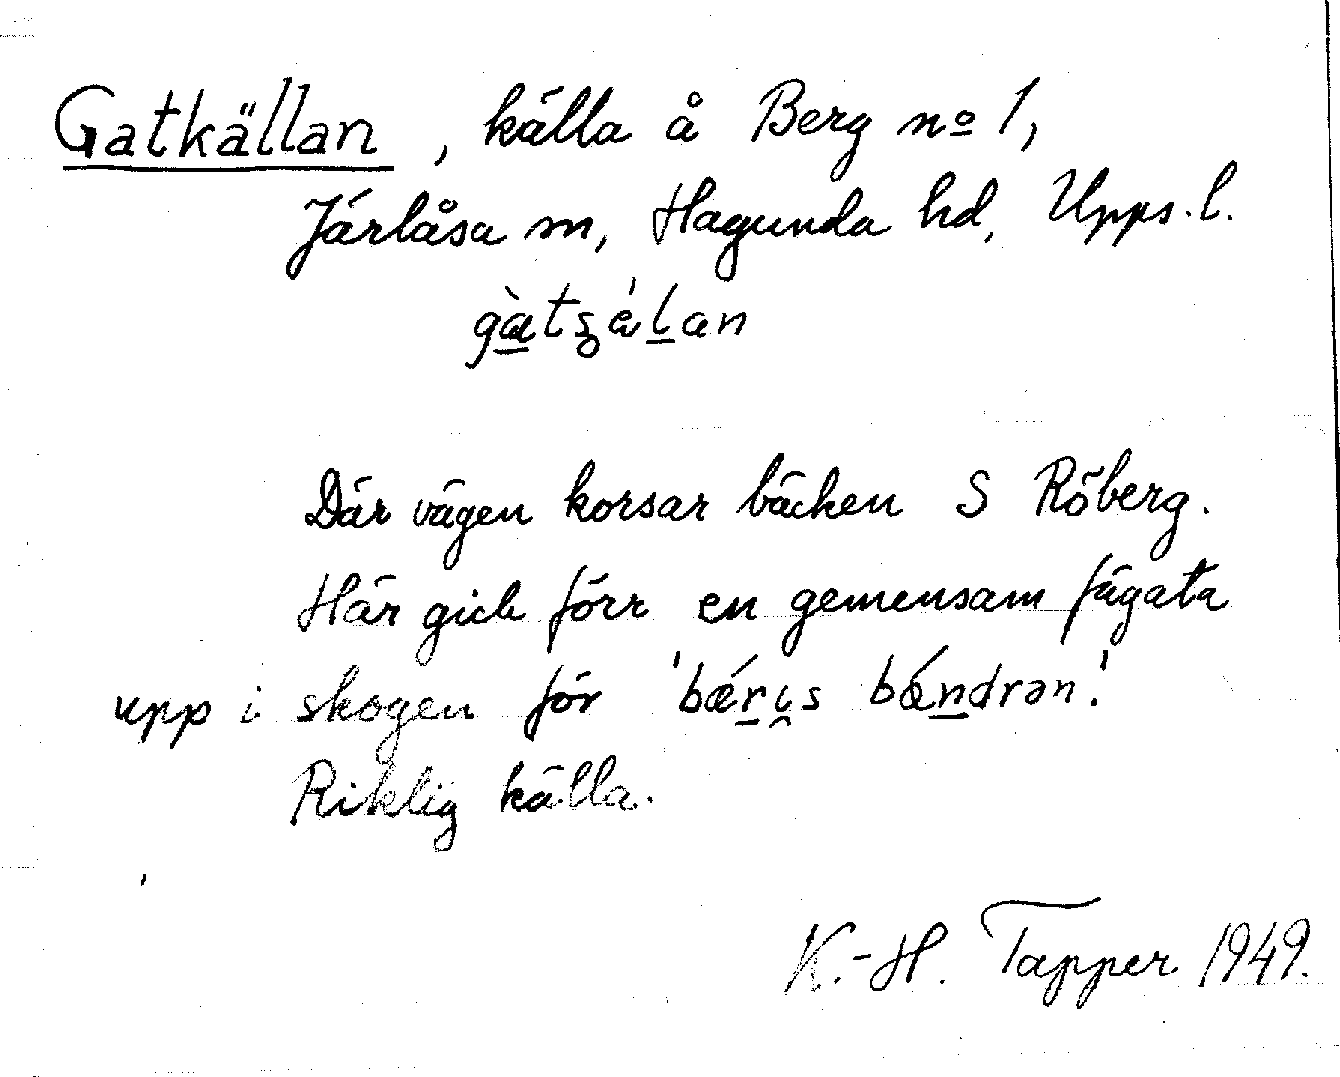 Gatkällan, källa å Berg nº 1,
Järlåsa sn, Hagunda hd, Upps. l.
gà̱tʂé̀ḻan
Där vägen korsar bäcken S Röberg.
Här gick förr en gemensam fägata
upp i skogen för 'bǽṟi̯s bǿṉdrən'.
Riklig källa.
K.-H. Tapper 1949.